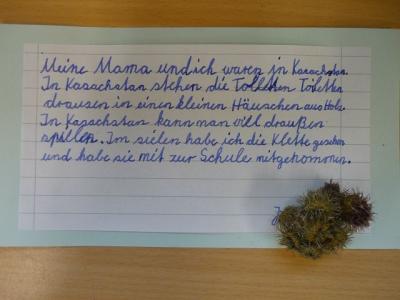 Meine Mama und ich waren in Kasachstan.
In Kasachstan stehen die Toiletten
drausen in einen kleinen Häuschen aus Holz.
In Kasachstan kann man vill draußen
spillen. Im sielen habe ich die Klette gesehen
und habe sie mit zur Schule mitgekommen.